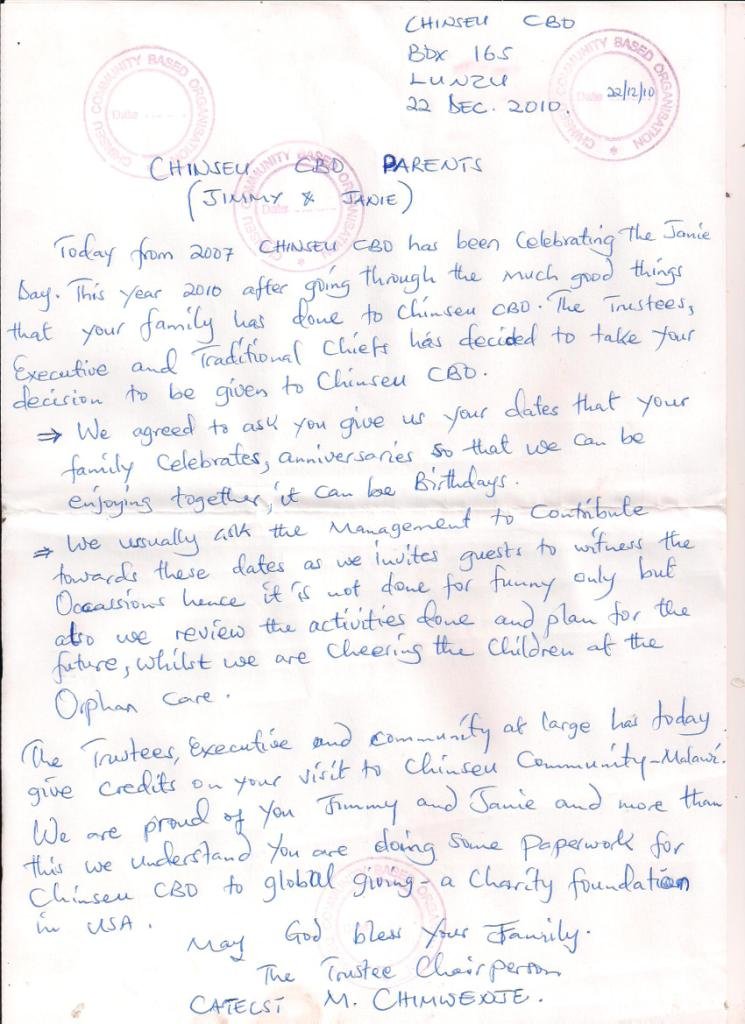 CHINSEU CBO
BOX 165
LUNZU
22 DEC. 2010.
CHINSEU COMMUNITY BASED ORGANISATION
Date
CHINSEU COMMUNITY BASED ORGANISATION
Date 22/12/10
CHINSEU CBO PARENTS
(JIMMY & JANIE)
CHINSEU COMMUNITY BASED ORGANISATION
Date
Today from 2007 CHINSEU CBO has been Celebrating The Janie
Day. This year 2010 after going through the much good things
that your family has done to Chinseu CBO. The Trustees,
Executive and Traditional Chiefs has decided to take your
decision to be given to Chinseu CBO.
⇒ We agreed to ask you give us your dates that your
family Celebrates, anniversaries so that we can be
enjoying together, it can be Birthdays.
⇒ We usually ask the Management to Contribute
towards these dates as we invites guests to witness the
Occassions hence it is not done for funny only but
also we review the activities done and plan for the
future, whilst we are Cheering the Children at the
Orphan Care.
The Trustees, Executive and community at large has today
give credits on your visit to Chinseu Community-Malawi.
We are proud of you Jimmy and Janie and more than
this we understand you are doing some paperwork for
Chinseu CBO to global giving - a Charity foundation
in USA.
May God bless your Family.
The Trustee Chairperson
M.